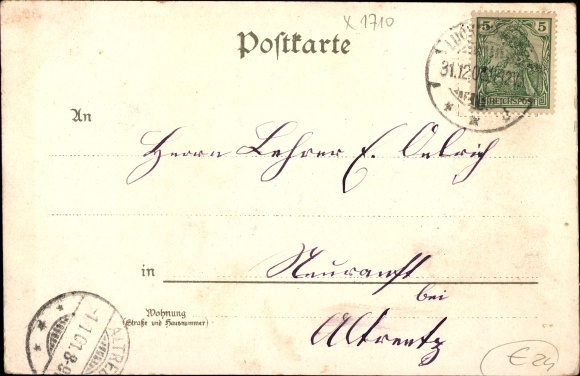 X 1710
Postkarte
5 5
REICHSPOST
31.12.0
An
Herrn Lehrer E. Oelrich
in Neuranft
bei
Altreetz
Wohnung
(Straße und Hausnummer)
1.1.01.8-9
ALTREE
€24